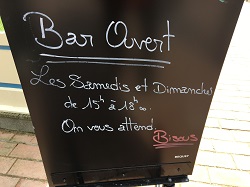 Bar Ouvert
Les Samedis et Dimanches
de 15h à 18h00
On vous attend!
Bisous